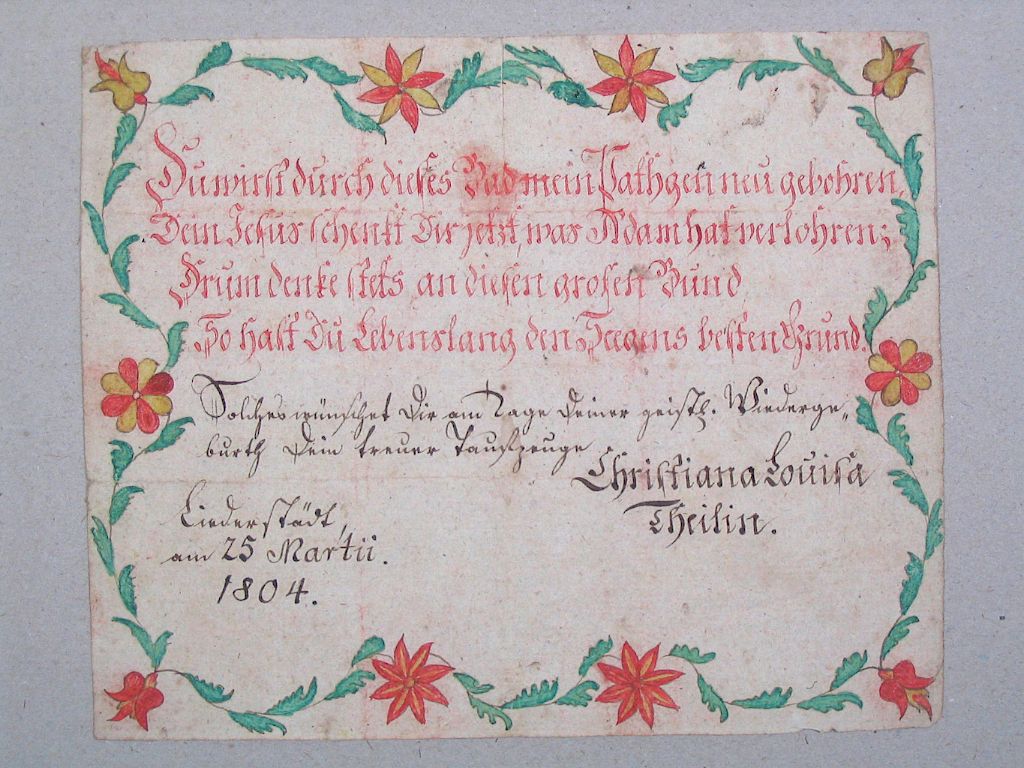 Du wirst durch dieses Bad mein Pathgen neu gebohren,
Dein Jesus schenkt Dir jetzt, was Adam hat verlohren;
Drum denke stets an diesen grosen Bund,
So hast Du Lebenslang den Seegens besten Grund.
Solches wünschet Dir am Tage Deiner geistl. Wiederge-
burth Dein treuer Taufzeuge
Christiana Louisa
Theilin.
Liederstädt,
am 25 Martii.
1804.